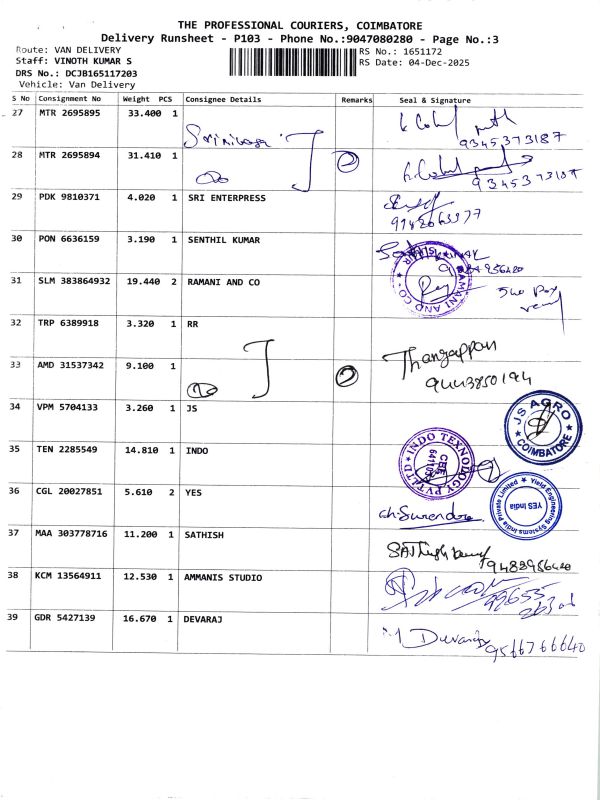 THE PROFESSIONAL COURIERS, COIMBATORE
Delivery Runsheet - P103 - Phone No.:9047080280 - Page No.:3
Route: VAN DELIVERY
RS No.: 1651172
Staff: VINOTH KUMAR S
RS Date: 04-Dec-2025
DRS No.: DCJB165117203
Vehicle: Van Delivery
S No Consignment No Weight PCS Consignee Details Remarks Seal & Signature
27 MTR 2695895 33.400 1
9345373187
28 MTR 2695894 31.410 1 2
29 PDK 9810371 4.020 1 SRI ENTERPRESS
30 PON 6636159 3.190 1 SENTHIL KUMAR
31 SLM 383864932 19.440 2 RAMANI AND CO
RAMANI AND CO
32 TRP 6389918 3.320 1 RR
Thangappan
33 AMD 31537342 9.100 1 2
9443850194
34 VPM 5704133 3.260 1 JS
JS AGRO
COIMBATORE
35 TEN 2285549 14.810 1 INDO
INDO TEXNOLOGY PVT LTD
36 CGL 20027851 5.610 2 YES
ch. Surendra
Yield Engineering Systems India Private Limited
YES India
37 MAA 303778716 11.200 1 SATHISH
38 KCM 13564911 12.530 1 AMMANIS STUDIO
39 GDR 5427139 16.670 1 DEVARAJ
M Devaraj
9566766640